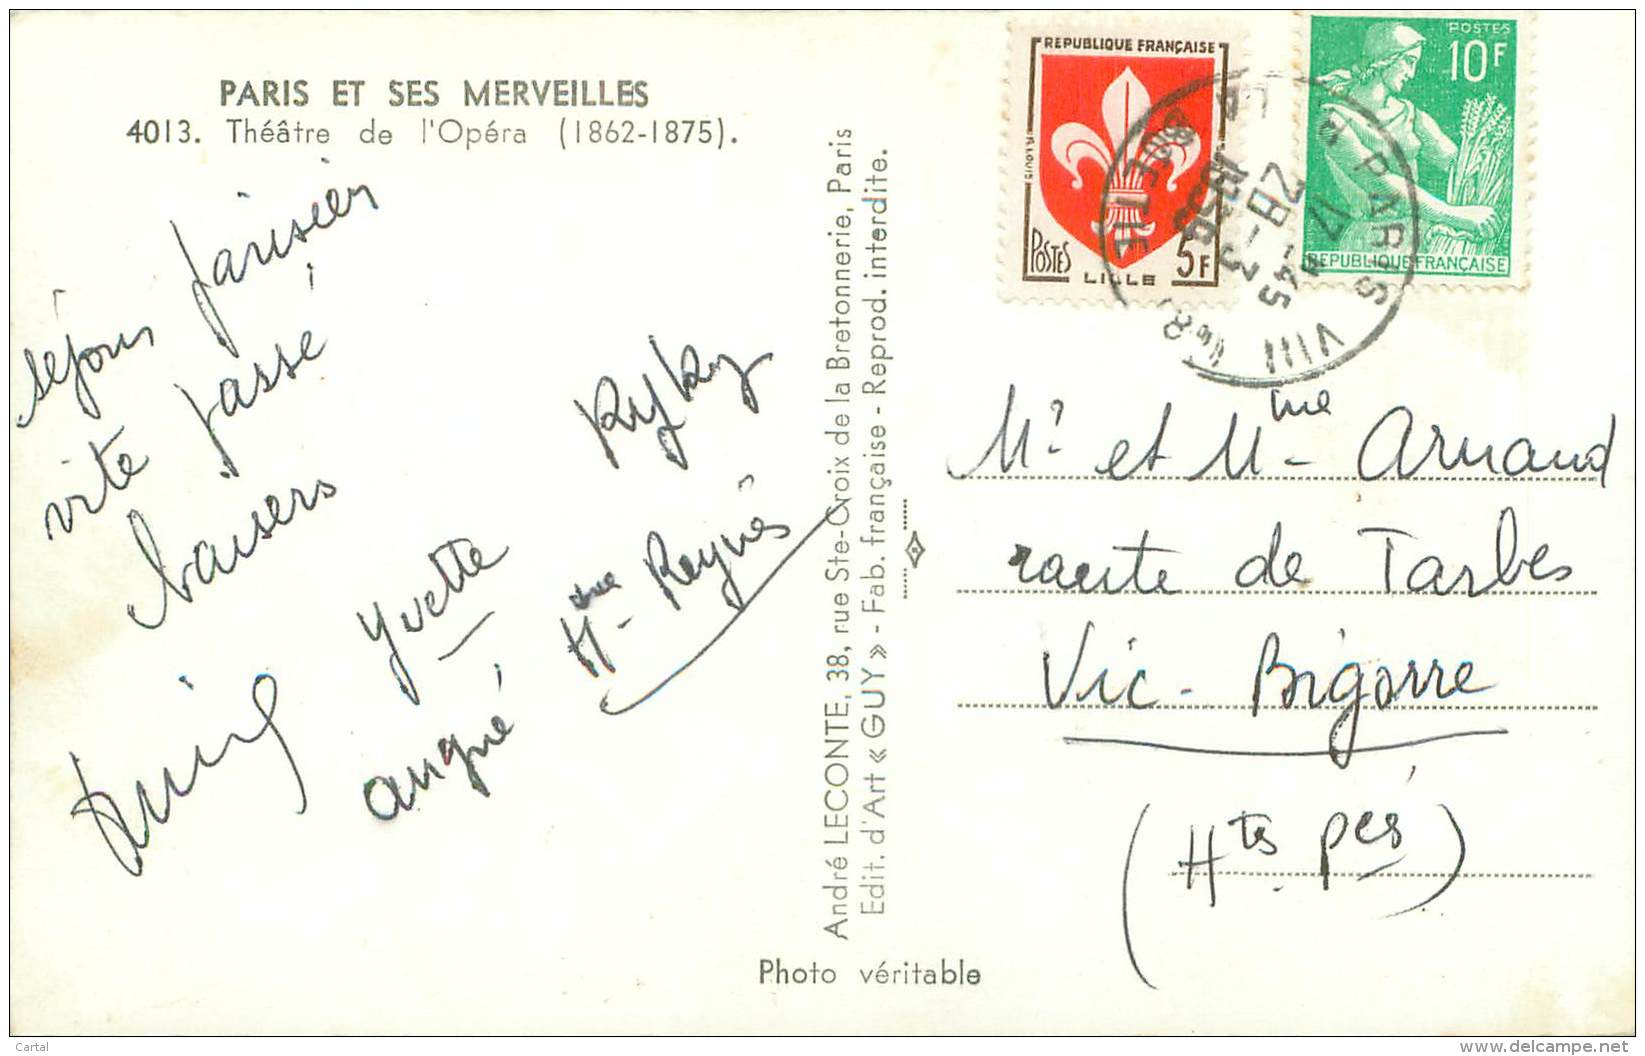 PARIS ET SES MERVEILLES
4013. Théâtre de l'Opéra (1862-1875).
séjour parisien
vite passé
baisers
Ryky
Yvette
Mme Reynès
André LECONTE, 38, rue Ste-Croix de la Bretonnerie, Paris
Edit. d'Art « GUY » - Fab. française - Reprod. interdite.
Photo véritable
REPUBLIQUE FRANÇAISE
POSTES
5F
LILLE
POSTES
10F
REPUBLIQUE FRANÇAISE
PARIS VIII
Mr et Mme Arnaud
route de Tarbes
Vic-Bigorre
(Htes pes)
© Cartal
www.delcampe.net